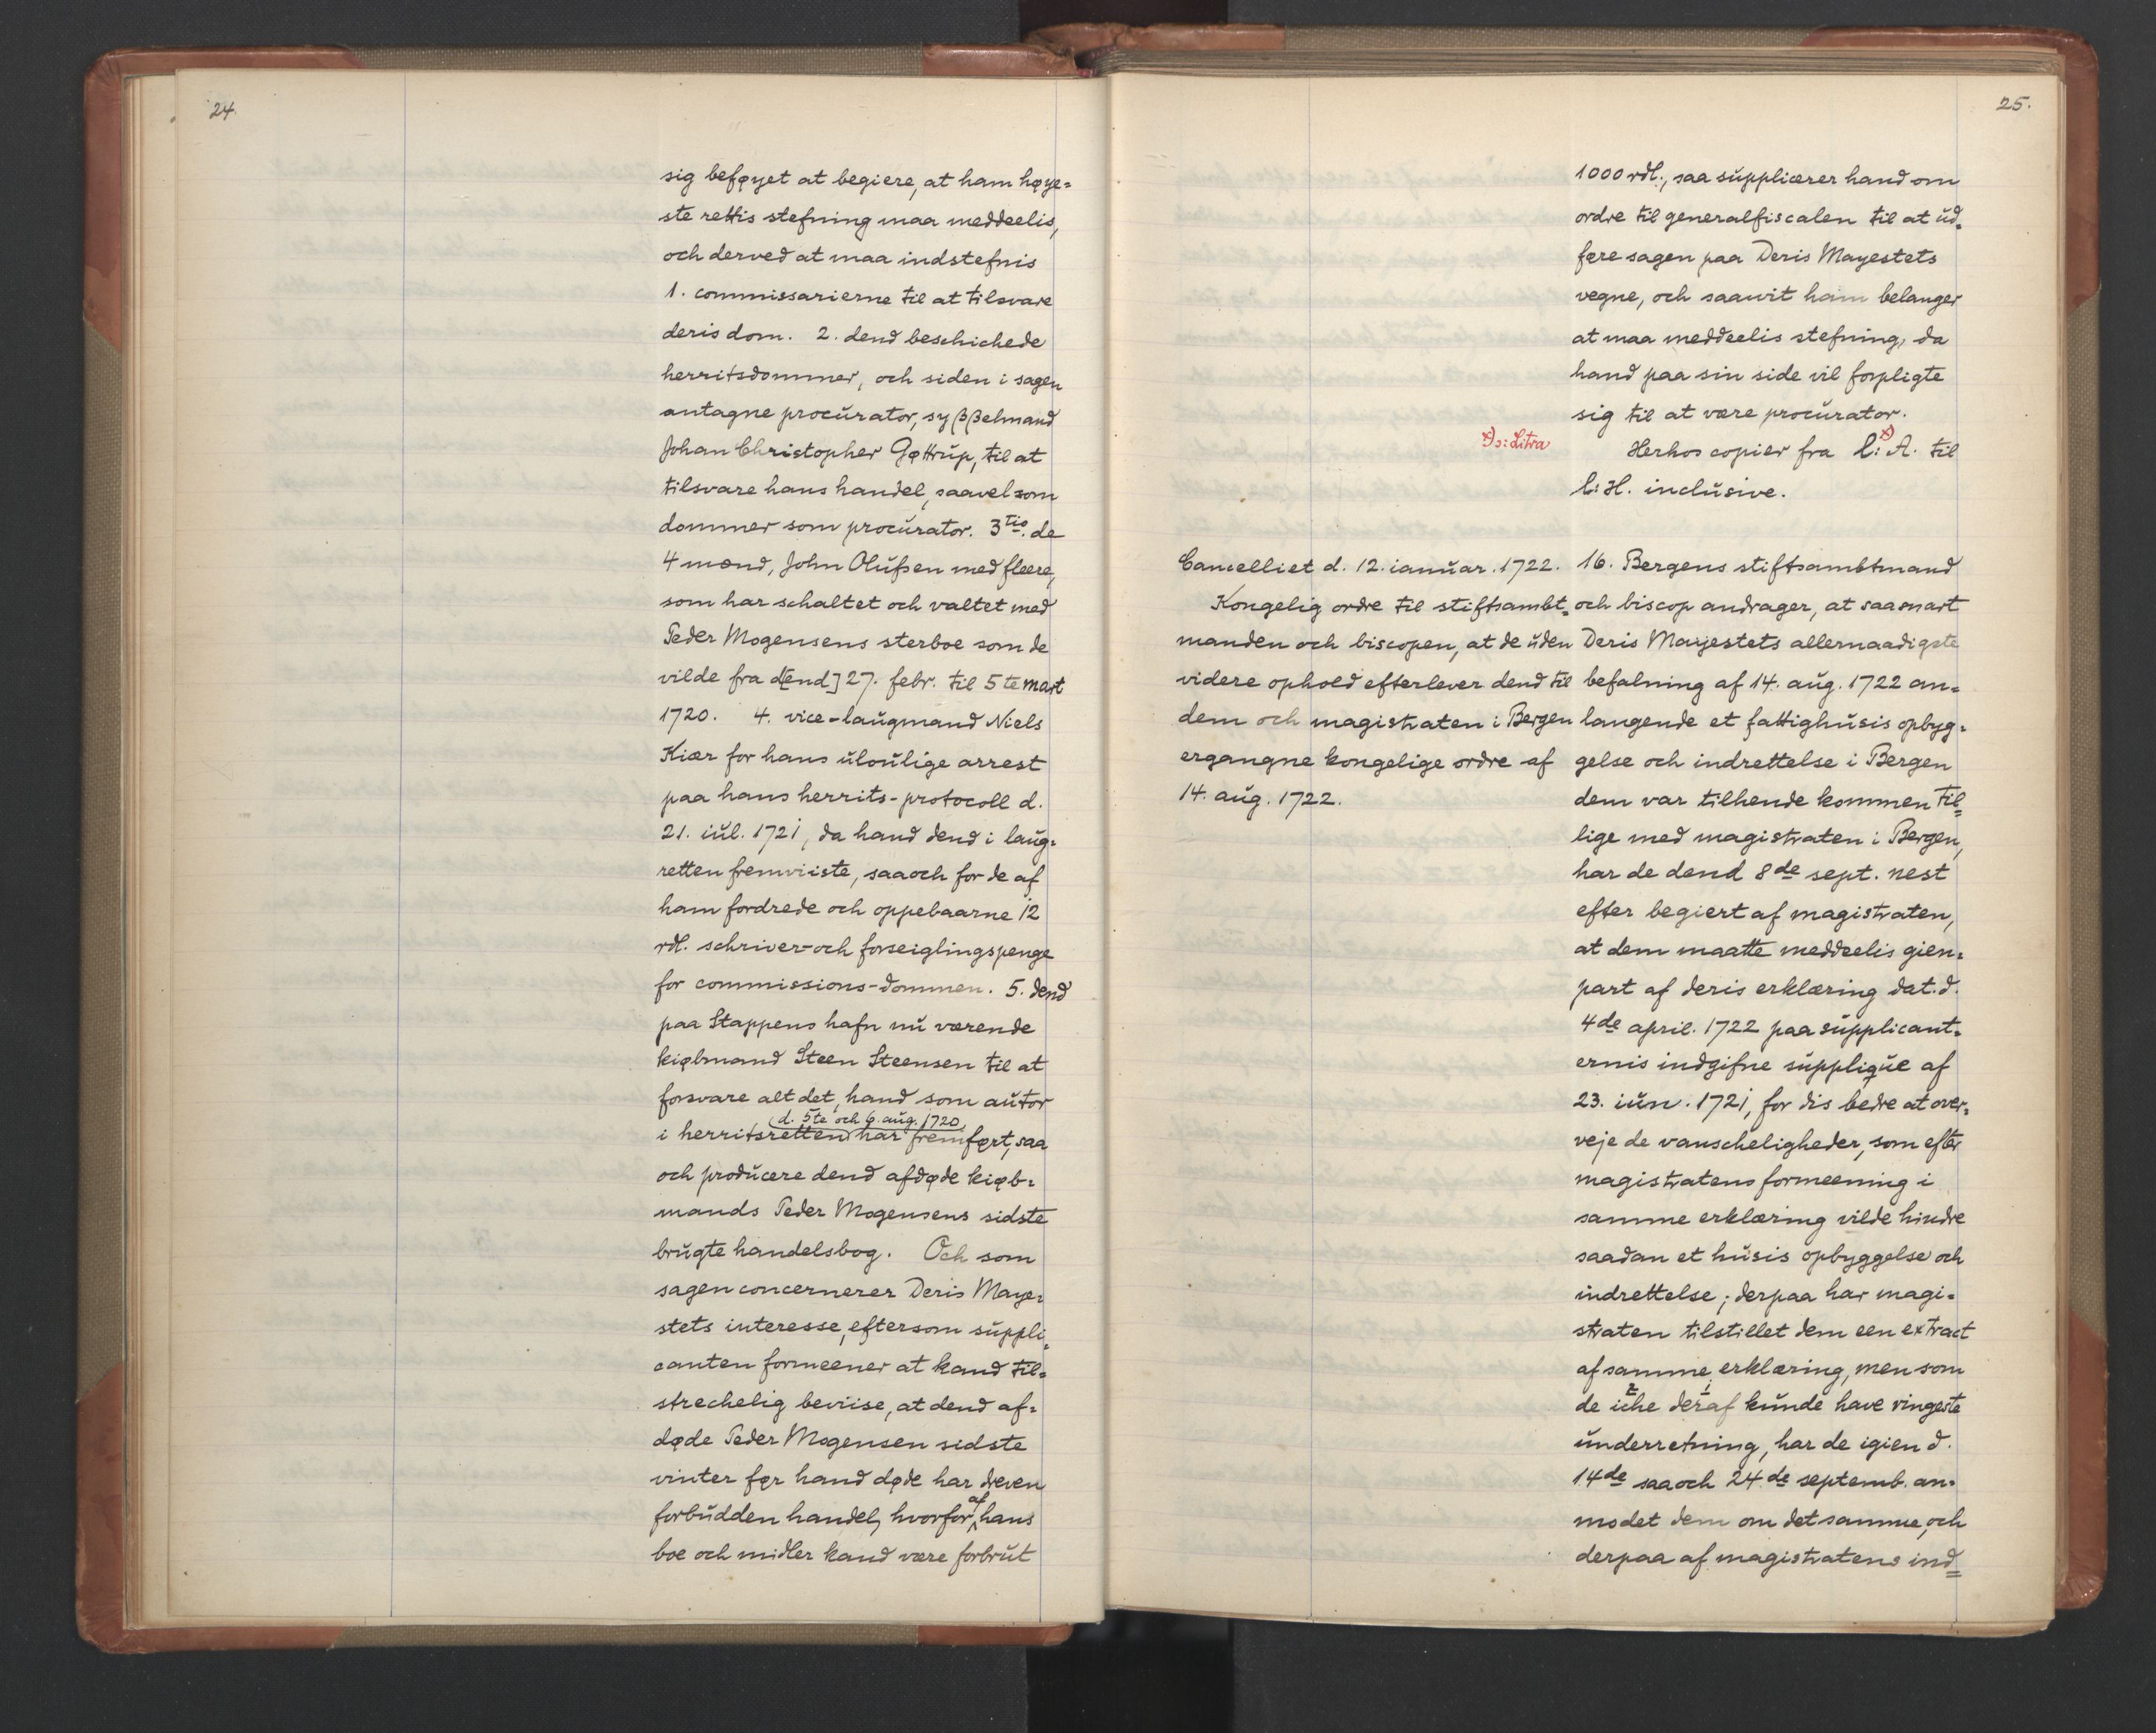 24.
sig beføyet at begiere, at ham høye=
ste rettis stefning maa meddeelis,
och derved at maa indstefnis
1. commissarierne til at tilsvare
deris dom. 2. dend beschichede
herritsdommer, och siden i sagen
antagne procurator, syßelmand
Johan Christopher Gøttrup, til at
tilsvare hans handel, saavel som
dommer som procurator. 3tio. de
4 mænd, John Olufsen med fleere,
som har schaltet och valtet med
Peder Mogensens sterboe som de
vilde fra d[end] 27. febr. til 5te mart
1720. 4. vice-laugmand Niels
Kiær for hans ulovlige arrest
paa hans herrits-protocoll d.
21. iul. 1721, da hand dend i laug=
retten fremviiste, saaoch for de af
ham fordrede och oppebaarne 12
rdl. schriver- och forseiglingspenge
for commissions-dommen. 5. dend
paa Stappens hafn nu værende
kiøbmand Steen Steensen til at
forsvare alt det, hand som autor
d. 5te och 6. aug. 1720
i herritsretten har fremført, saa
och producere dend afdøde kiøb=
mands Peder Mogensens sidste
brugte handelsbog. Och som
sagen concernerer Deris Maye=
stets interesse, eftersom suppli=
canten formeener at kand til=
strechelig beviise, at dend af=
døde Peder Mogensen sidste
vinter før hand døde har dreven
forbudden handel, hvorfor af hans
boe och midler kand være forbrut
25.
1000 rdl., saa supplicerer hand om
ordre til generalfiscalen til at ud=
føre sagen paa Deris Mayestets
vegne, och saawit ham belanger
at maa meddeelis stefning, da
hand paa sin side vil forpligte
sig til at være procurator.
x) ɔ: Litra
Herhos copier fra l: x) A. til
l: H. inclusive.
Cancelliet d. 12. ianuar. 1722.
Kongelig ordre til stiftsambt=
manden och biscopen, at de uden
videre ophold efterlever dend til
dem och magistraten i Bergen
ergangne kongelige ordre af
14. aug. 1722.
16. Bergens stiftsambtmand
och biscop andrager, at saasnart
Deris Mayestets allernaadigste
befalning af 14. aug. 1722 an=
langende et fattighusis opbyg=
gelse och indrettelse i Bergen
dem var tilhende kommen til=
lige med magistraten i Bergen,
har de dend 8de sept. nest
efter begiert af magistraten,
at dem maatte meddeelis gien=
part af deris erklæring dat. d.
4de april. 1722 paa supplicant=
ernis indgifne supplique af
23. iun. 1721, for dis bedre at over=
veje de vanscheligheder, som efter
magistratens formeening i
samme erklæring vilde hindre
saadan et husis opbyggelse och
indrettelse; derpaa har magi=
straten tilstillet dem een extract
af samme erklæring, men som
2 1
de iche deraf kunde have ringeste
underretning, har de igien d.
14de saaoch 24de septemb. an=
modet dem om det samme, och
derpaa af magistratens ind=